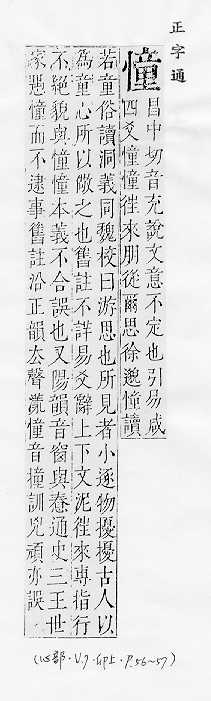 正字通
憧
昌中切音充說文意不定也引易咸
四爻憧憧徃來朋從爾思徐邈憧讀
若童俗讀洞義同魏校曰游思也所見者小逐物擾擾古人以
為童心所以儆之也舊註不詳易爻辭上下文泥徃來專指行
不絕貌與憧憧本義不合誤也又陽韻音窗與惷通史三王世
家愚憧而不逮事舊註沿正韻去聲憧音撞訓兇頑亦誤
(心部.V.9.卯上.P.56~57)